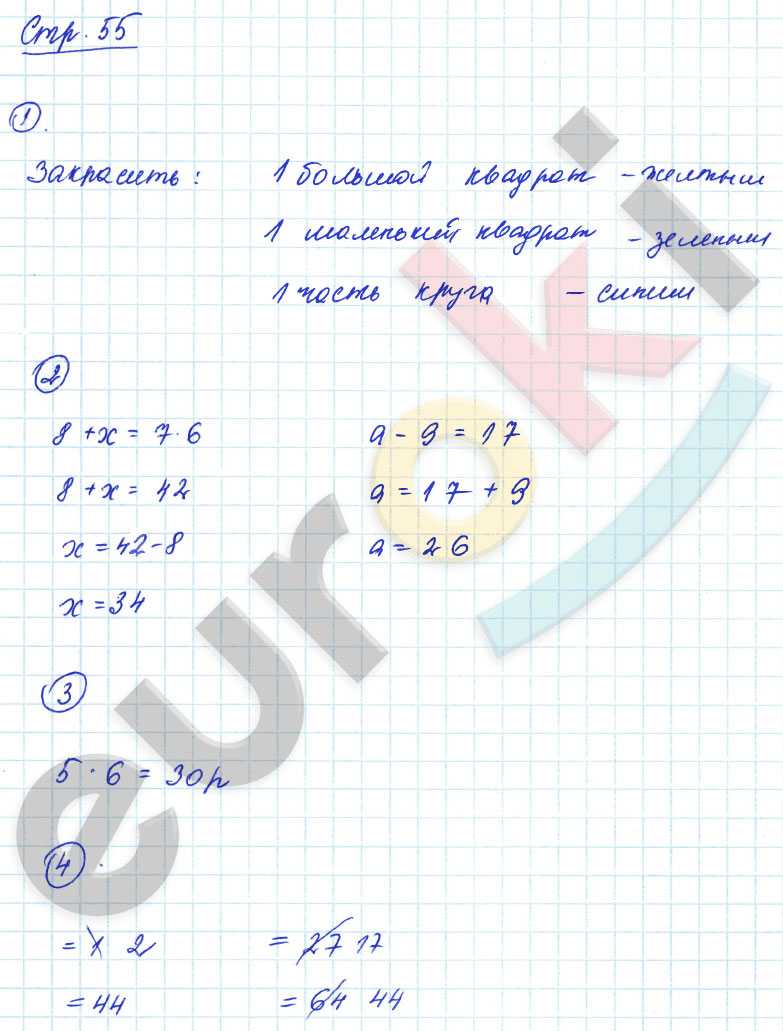 Стр. 55
1.
Закрасить: 1 большой квадрат - желтым
1 маленький квадрат - зеленым
1 часть круга - синим
2
8 + x = 7 · 6 a - 9 = 17
8 + x = 42 a = 17 + 9
x = 42 - 8 a = 26
x = 34
3
5 · 6 = 30 р
4.
= 1 2 = 27 17
= 44 = 64 44
euroki